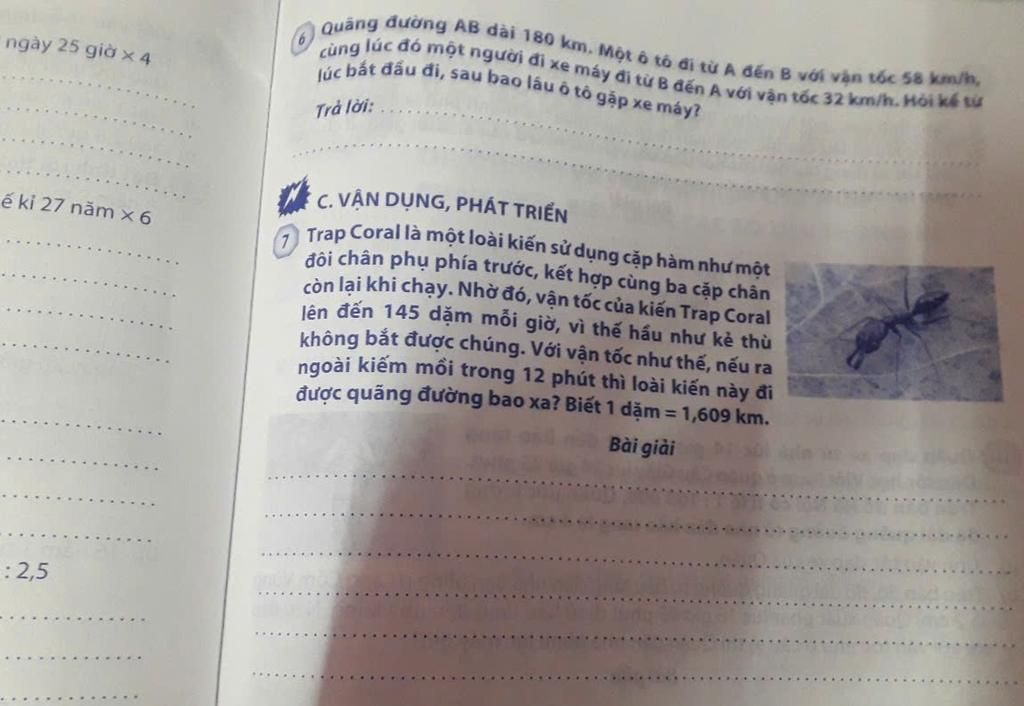 ngày 25 giờ × 4
ế kỉ 27 năm × 6
: 2,5
6 Quãng đường AB dài 180 km. Một ô tô đi từ A đến B với vận tốc 58 km/h,
cùng lúc đó một người đi xe máy đi từ B đến A với vận tốc 32 km/h. Hỏi kể từ
lúc bắt đầu đi, sau bao lâu ô tô gặp xe máy?
Trả lời:
C. VẬN DỤNG, PHÁT TRIỂN
7 Trap Coral là một loài kiến sử dụng cặp hàm như một
đôi chân phụ phía trước, kết hợp cùng ba cặp chân
còn lại khi chạy. Nhờ đó, vận tốc của kiến Trap Coral
lên đến 145 dặm mỗi giờ, vì thế hầu như kẻ thù
không bắt được chúng. Với vận tốc như thế, nếu ra
ngoài kiếm mồi trong 12 phút thì loài kiến này đi
được quãng đường bao xa? Biết 1 dặm = 1,609 km.
Bài giải